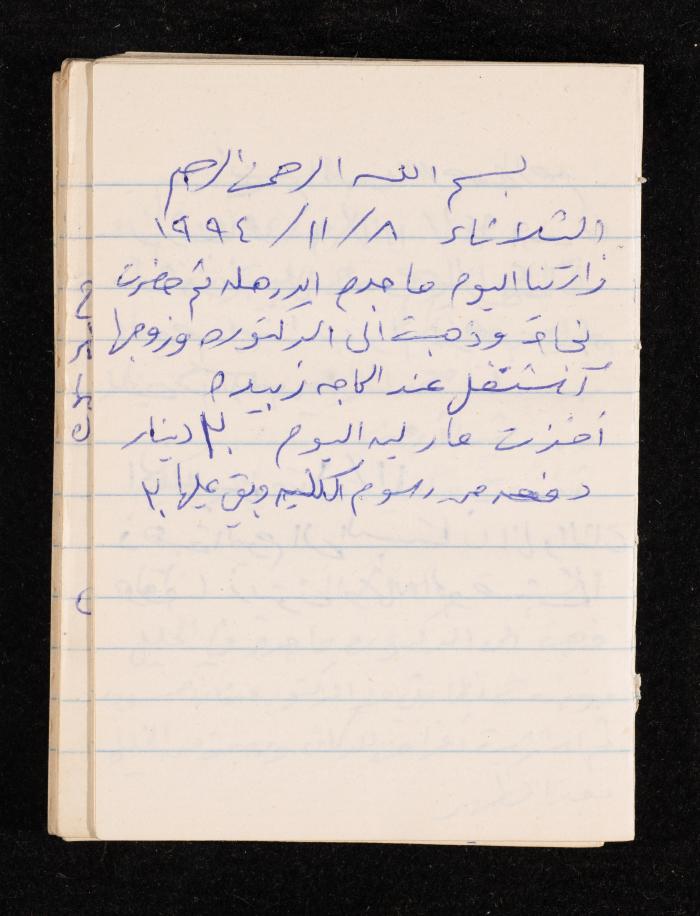 بسم الله الرحمن الرحيم
الثلاثاء ٨/١١/١٩٩٤
زارتنا اليوم ماجده ثم حضرت
نجاة وذهبت الى الدكتوره وزوجها
عند الحاجه زبيده
اخذت عاليه اليوم ٢٠ دينار
دفعه من رسوم الكليه وبقي عليها